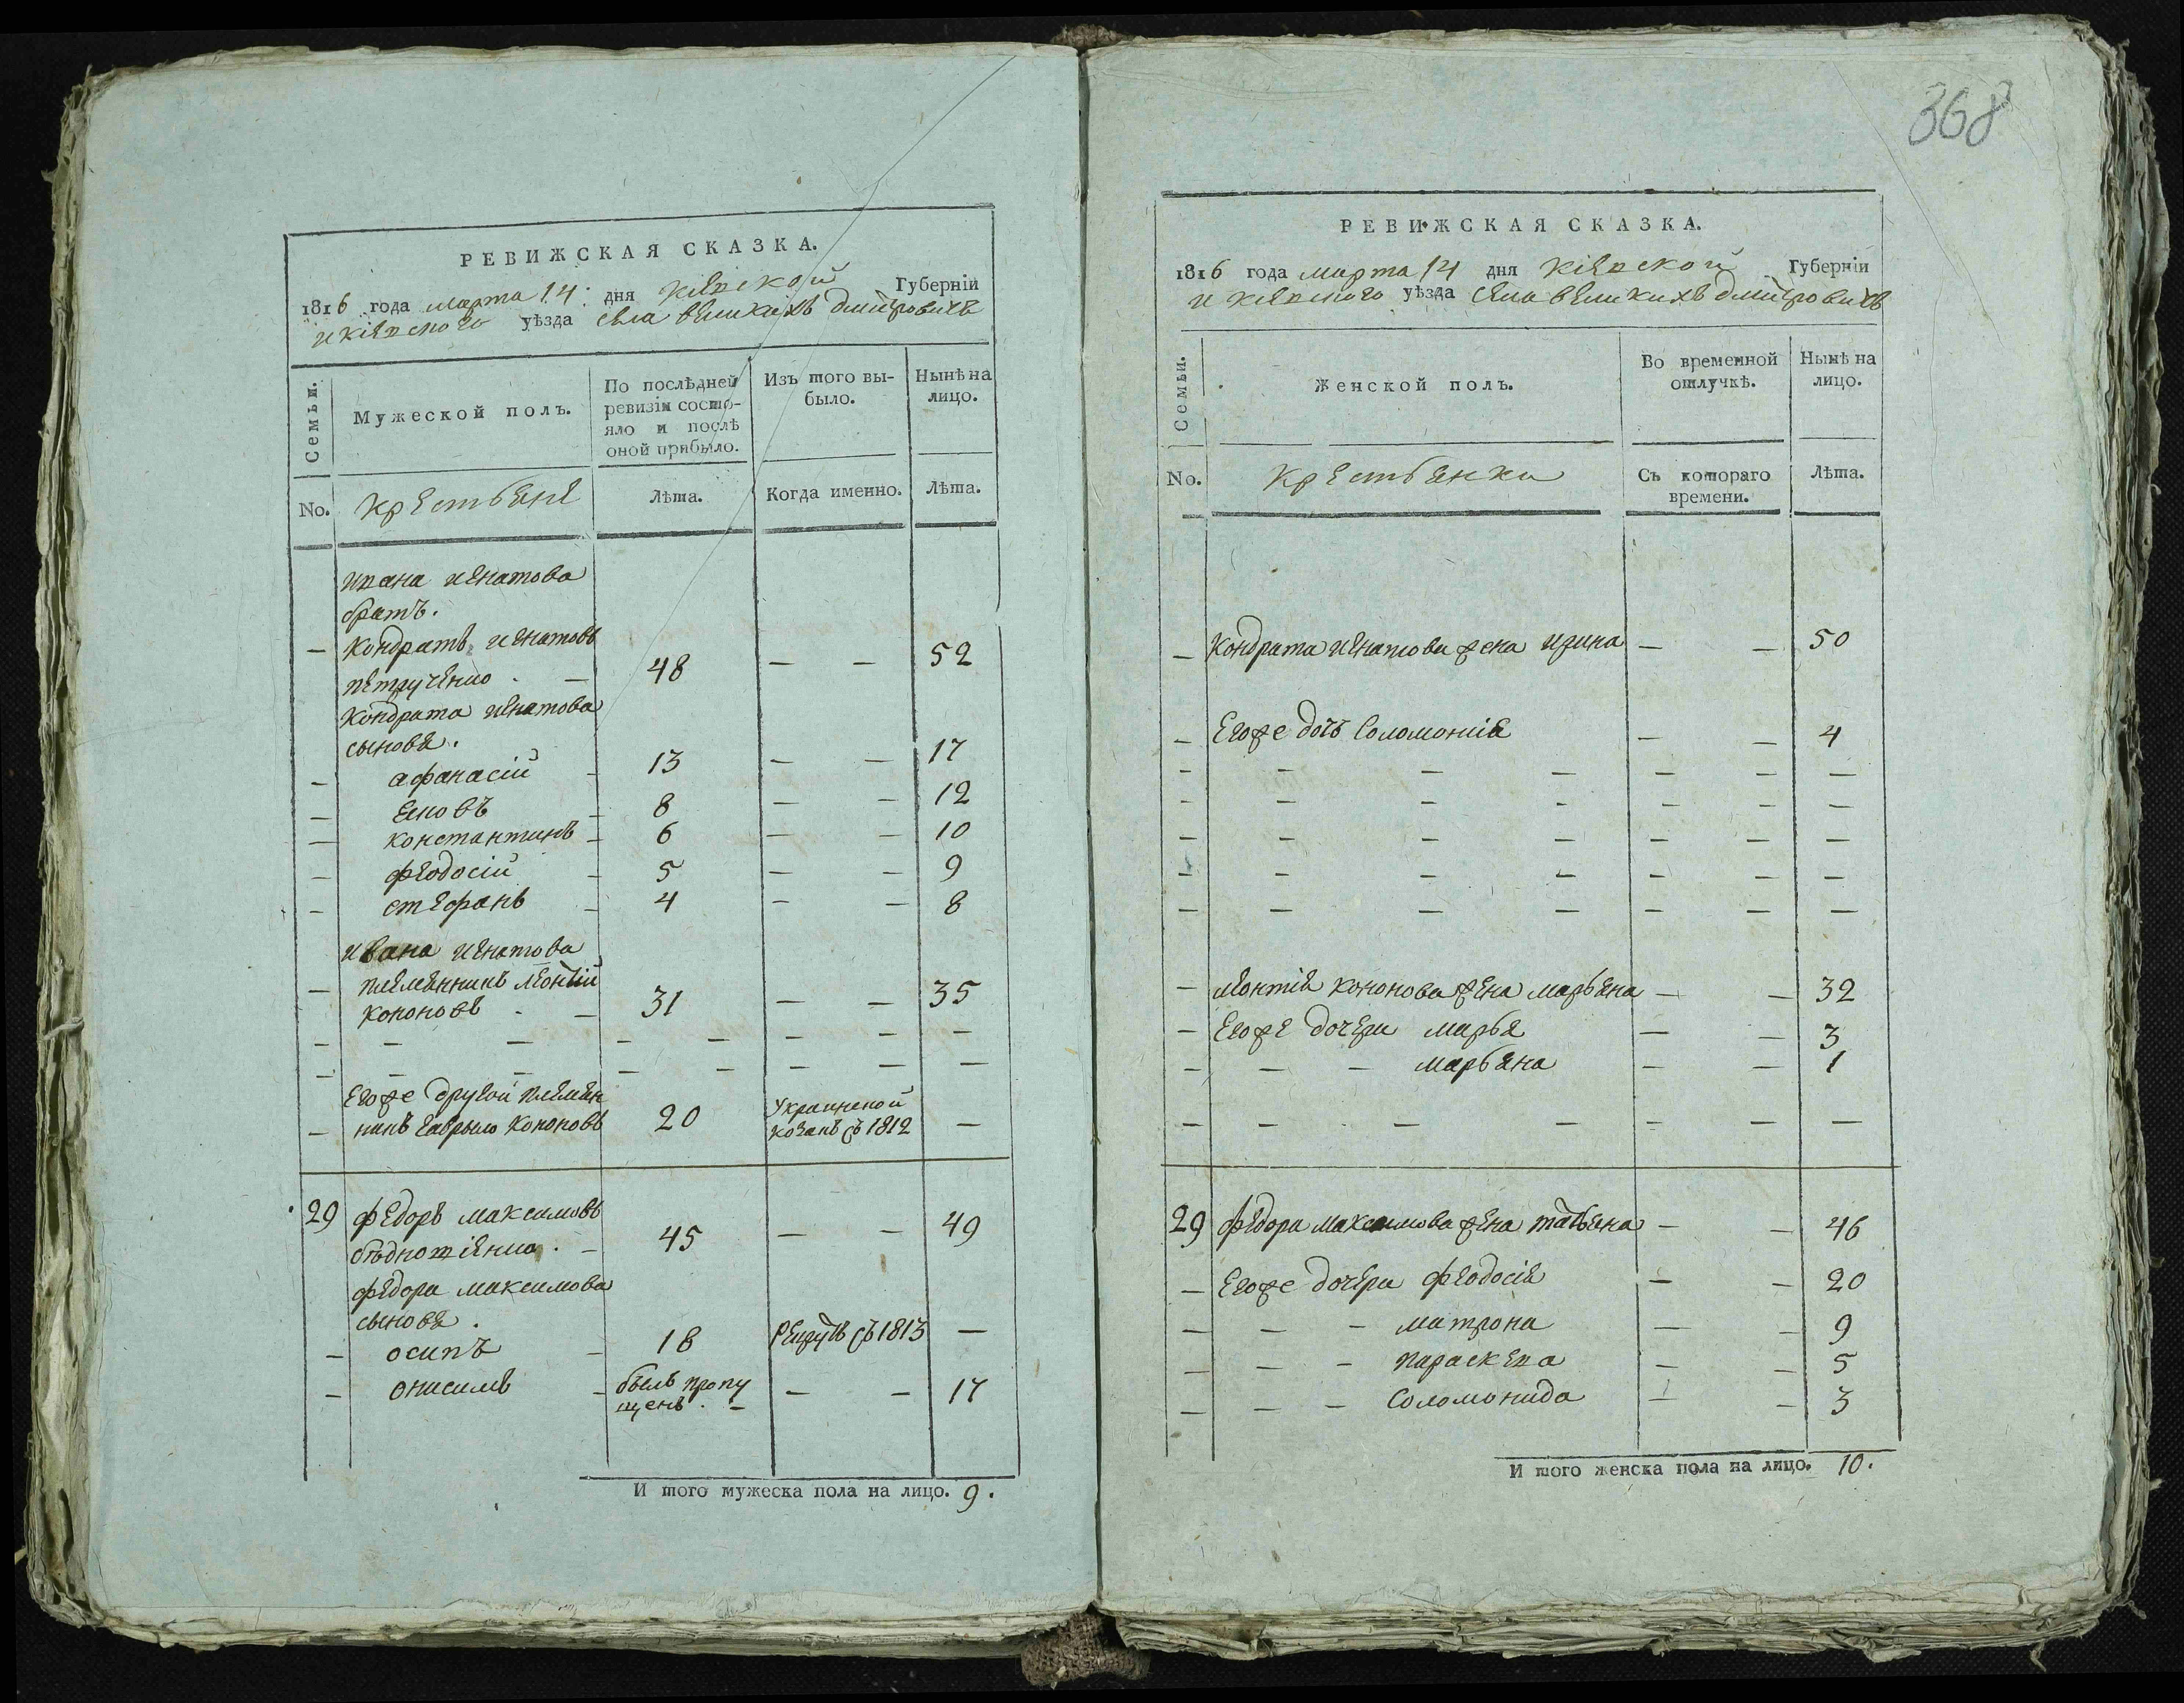 368
РЕВИЖСКАЯ СКАЗКА.
1816 года марта 14 дня Кіевской Губерніи
и Кіевского уѣзда села великихъ дмитровичъ
Семьи.
Мужеской полъ.
По послѣдней ревизіи состояло и послѣ оной прибыло.
Изъ того выбыло.
Нынѣ на лицо.
No. Крестьяне Лѣта. Когда именно. Лѣта.
ивана игнатова
братъ.
— Кондратъ игнатовъ
петрученко . — 48 — — 52
Кондрата игнатова
сыновя.
— афанасій — 13 — — 17
— — 8 — — 12
— константинъ — 6 — — 10
— феодосій — 5 — — 9
— стефанъ — 4 — — 8
ивана игнатова
— племянникъ леонтій
кононовъ . — 31 — — 35
— — — — — — — —
— — — — — — — —
Егоже другой племян
— никъ гаврыло Кононовъ 20 Украинской козакъ съ 1812 —
29 федоръ максимовъ
— 45 — — 49
федора максимова
сыновя .
— осипъ — 18 Рекрутъ съ 1813 —
— онисимъ — былъ пропу
щенъ . — — — 17
И того мужеска пола на лицо. 9.
РЕВИЖСКАЯ СКАЗКА.
1816 года марта 14 дня Кіевской Губерніи
и Кіевского уѣзда села великихъ дмитровичъ
Семьи.
Женской полъ.
Во временной отлучкѣ.
Нынѣ на лицо.
No. Крестьянки Съ котораго времени. Лѣта.
— Кондрата игнатова жена ирина — — 50
— Егоже дочь Соломонія — — 4
— — — — — — —
— — — — — — —
— — — — — — —
— — — — — — —
— — — — — — —
— леонтія кононова жена марьяна — — 32
— Егоже дочери марья — — 3
— — — марьяна — — 1
— — — — — — —
29 федора максимова жена татьяна — — 46
— Егоже дочери феодосія — — 20
— — — матрона — — 9
— — — параскева — — 5
— — — Соломонида — — 3
И того женска пола на лицо. 10.